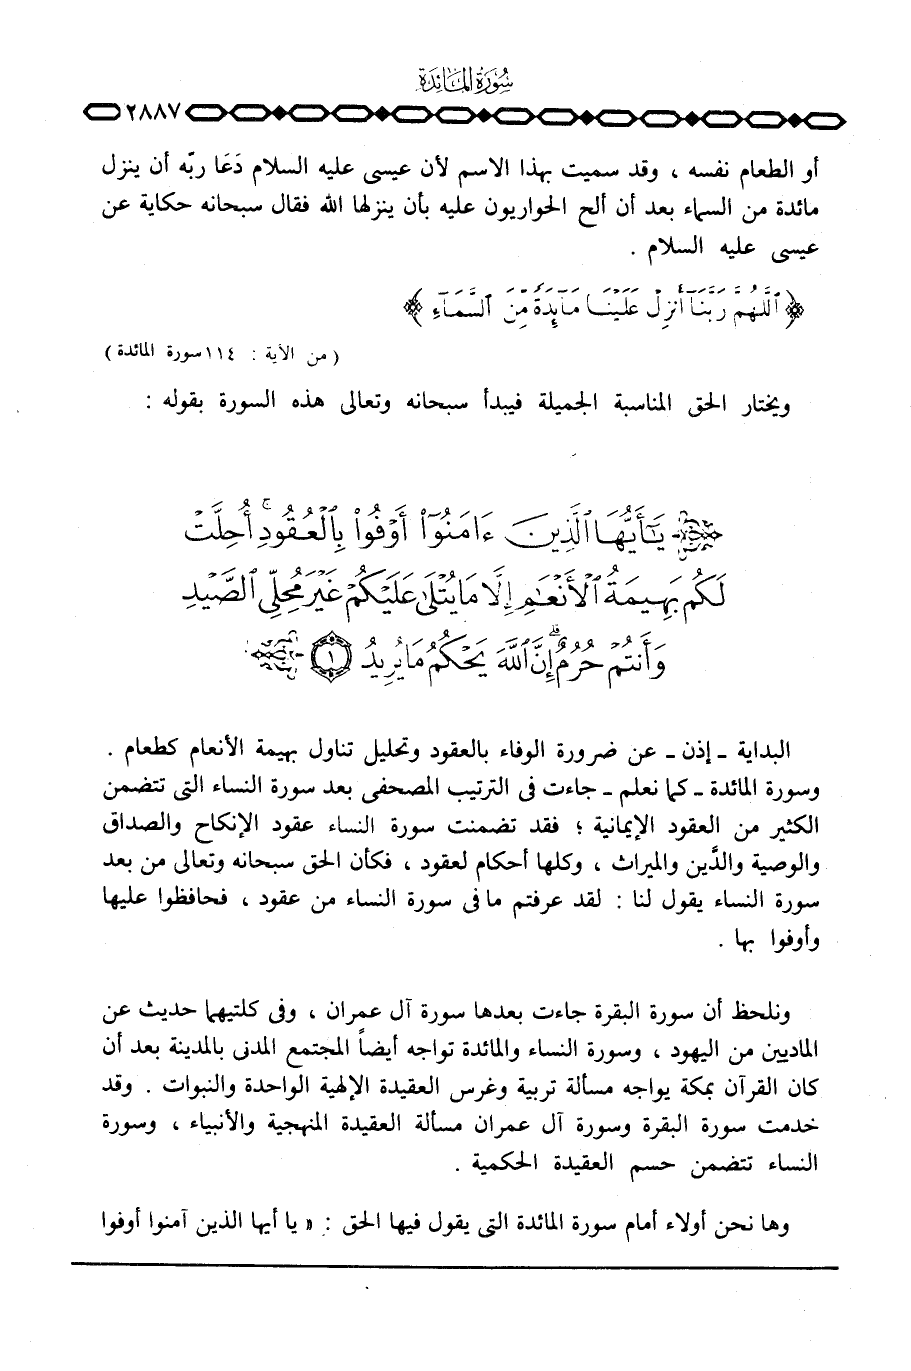 سُورَةُ المَائِدَةِ
٢٨٨٧
أو الطعام نفسه ، وقد سميت بهذا الاسم لأن عيسى عليه السلام دَعَا ربّه أن ينزل
مائدة من السماء بعد أن ألح الحواريون عليه بأن ينزلها الله فقال سبحانه حكاية عن
عيسى عليه السلام .
﴿ ٱللَّهُمَّ رَبَّنَآ أَنزِلْ عَلَيْنَا مَآئِدَةً مِّنَ ٱلسَّمَآءِ ﴾
( من الآية : ١١٤ سورة المائدة )
ويختار الحق المناسبة الجميلة فيبدأ سبحانه وتعالى هذه السورة بقوله :
يَٰٓأَيُّهَا ٱلَّذِينَ ءَامَنُوٓا۟ أَوْفُوا۟ بِٱلْعُقُودِ ۚ أُحِلَّتْ
لَكُم بَهِيمَةُ ٱلْأَنْعَٰمِ إِلَّا مَا يُتْلَىٰ عَلَيْكُمْ غَيْرَ مُحِلِّى ٱلصَّيْدِ
وَأَنتُمْ حُرُمٌ ۗ إِنَّ ٱللَّهَ يَحْكُمُ مَا يُرِيدُ ١
البداية ـ إذن ـ عن ضرورة الوفاء بالعقود وتحليل تناول بهيمة الأنعام كطعام .
وسورة المائدة ـ كما نعلم ـ جاءت فى الترتيب المصحفى بعد سورة النساء التى تتضمن
الكثير من العقود الإيمانية ؛ فقد تضمنت سورة النساء عقود الإنكاح والصداق
والوصية والدَّين والميراث ، وكلها أحكام لعقود ، فكأن الحق سبحانه وتعالى من بعد
سورة النساء يقول لنا : لقد عرفتم ما فى سورة النساء من عقود ، فحافظوا عليها
وأوفوا بها .
ونلحظ أن سورة البقرة جاءت بعدها سورة آل عمران ، وفى كلتيهما حديث عن
الماديين من اليهود ، وسورة النساء والمائدة تواجه أيضاً المجتمع المدنى بالمدينة بعد أن
كان القرآن بمكة يواجه مسألة تربية وغرس العقيدة الإلهية الواحدة والنبوات . وقد
خدمت سورة البقرة وسورة آل عمران مسألة العقيدة المنهجية والأنبياء ، وسورة
النساء تتضمن حسم العقيدة الحكمية .
وها نحن أولاء أمام سورة المائدة التى يقول فيها الحق : « يا أيها الذين آمنوا أوفوا